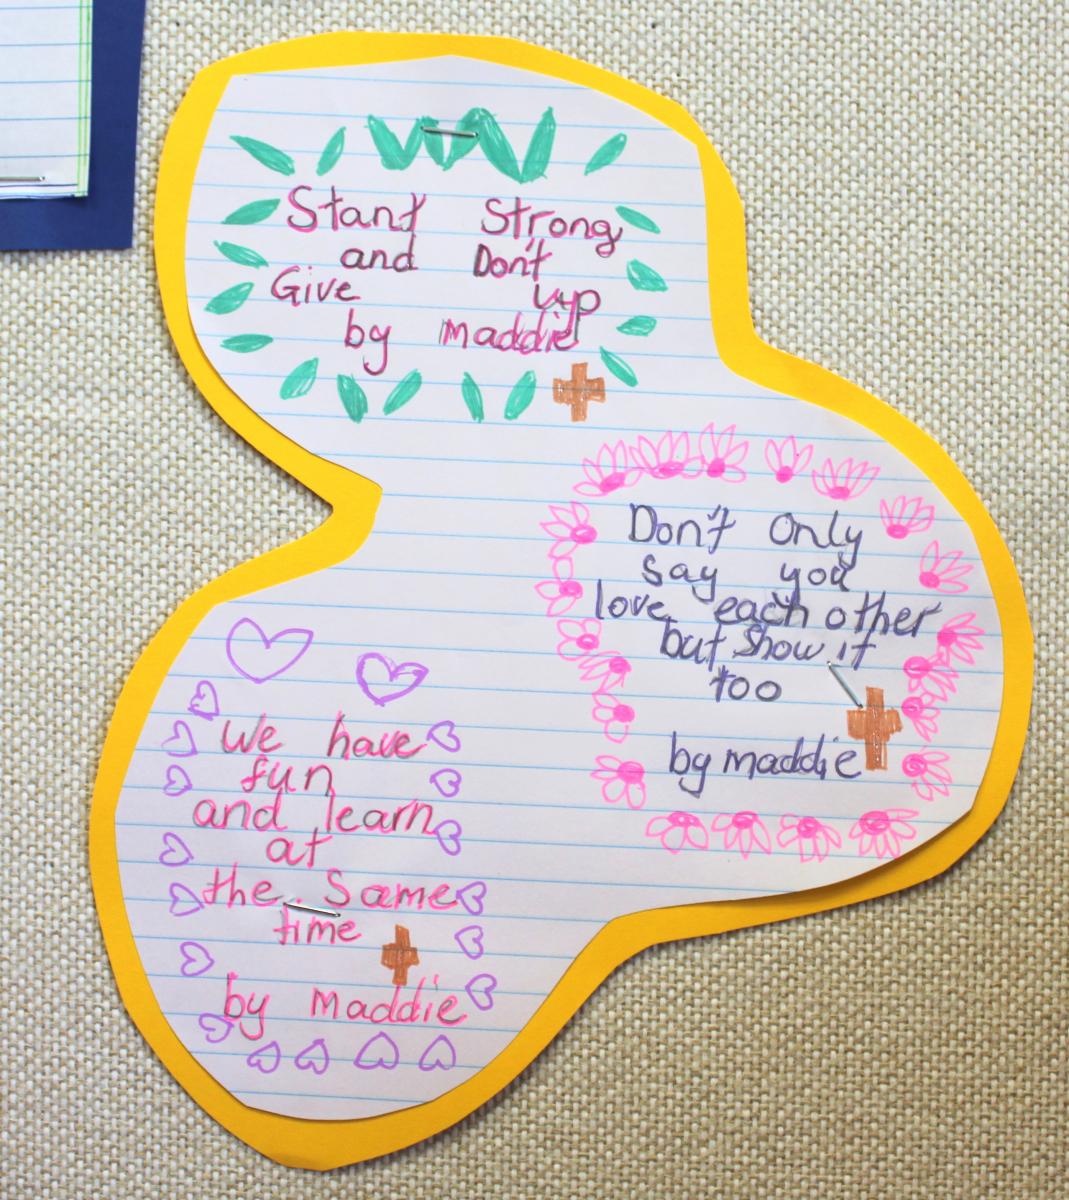 Stant Strong
and Don't
Give up
by maddie
Don't Only
say you
love each other
but show it
too
by maddie
We have
fun
and learn
at
the Same
time
by maddie